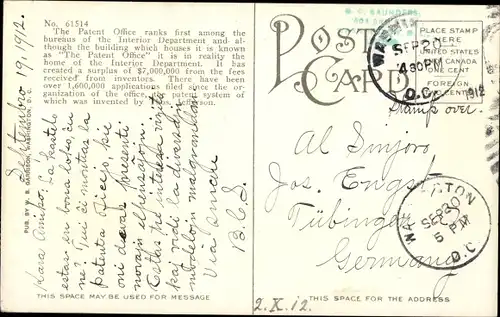 No. 61514
The Patent Office ranks first among the
bureaus of the Interior Department and al-
though the building which houses it is known
as "The Patent Office" it is in reality the
home of the Interior Department. It has
created a surplus of $7,000,000 from the fees
received from inventors. There have been
over 1,600,000 applications filed since the or-
ganization of the office, the patent system of
which was invented by
PUB. BY W. B. GARRISON, WASHINGTON, D.C.
Septembro 19, 1912.
kara Amiko. La kastelo
estas en bona loko, ĉu
ne? Tie ĉi montras la
patenta oficejo, kie
oni devas presenti
Estas tre interesa vizit
kaj vidi la diversajn
modelojn
Via sincere
B.E.S.
THIS SPACE MAY BE USED FOR MESSAGE
POST
CARD
PLACE STAMP
HERE
UNITED STATES
AND CANADA
ONE CENT
FOREIGN
TWO CENTS
WASHIN
SEP 20
4 30 PM
D.C.
1912
Stamp over.
Al Sinjoro
Jos. Engst
Tübingen
Germany
WA TON
SEP 20
5 PM
D.C.
2.X.12.
THIS SPACE IS FOR THE ADDRESS